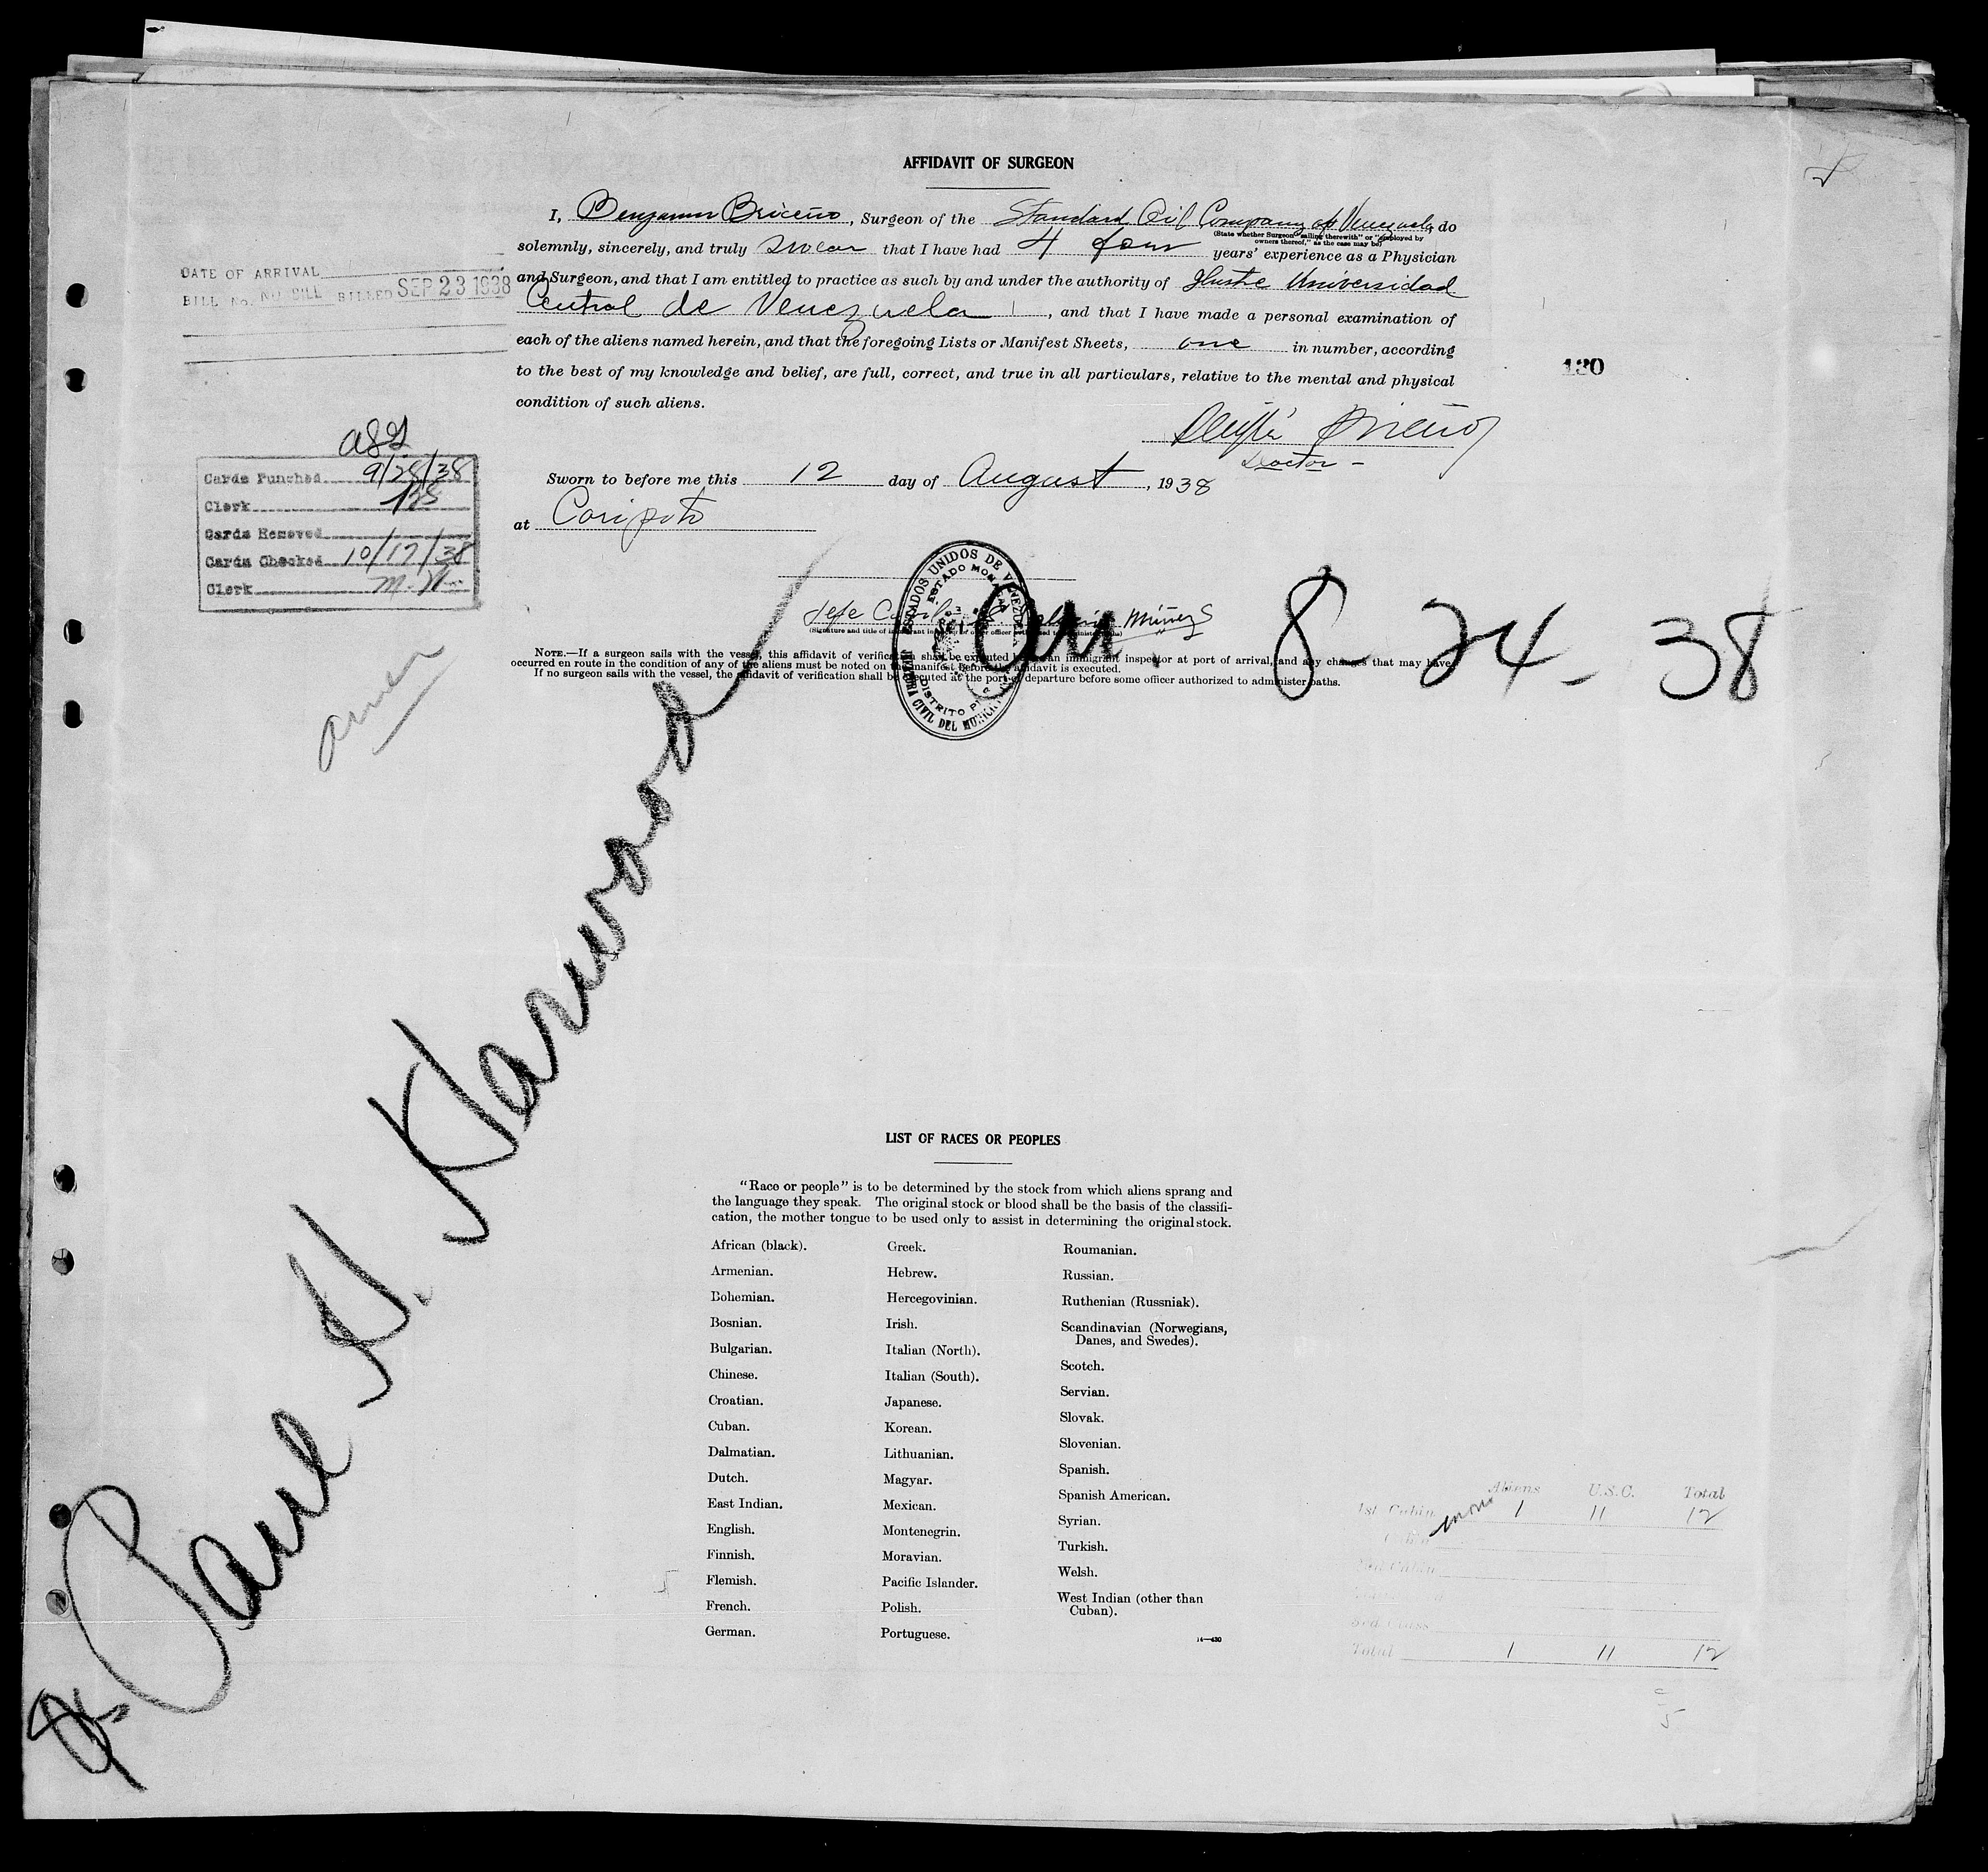 AFFIDAVIT OF SURGEON
I, Benjamin Briceño, Surgeon of the Standard Oil Company of Venezuela, do
(State whether Surgeon "sailing therewith" or "employed by
owners thereof," as the case may be)
solemnly, sincerely, and truly swear that I have had 4 four years' experience as a Physician
and Surgeon, and that I am entitled to practice as such by and under the authority of Ilustre Universidad
Central de Venezuela, and that I have made a personal examination of
each of the aliens named herein, and that the foregoing Lists or Manifest Sheets, one in number, according
to the best of my knowledge and belief, are full, correct, and true in all particulars, relative to the mental and physical
condition of such aliens.
Briceño
Doctor -
Sworn to before me this 12 day of August, 1938
at Caripito
DATE OF ARRIVAL
BILL No. NO BILL BILLED SEP 23 1938
130
Cards Punched 9/28/38
Clerk
Cards Removed
Cards Checked 10/17/38
Clerk
Jefe Civil
ESTADOS UNIDOS DE VENEZUELA
ESTADO MONAGAS
JEFATURA CIVIL DEL MUNICIPIO
DISTRITO
Arr. 8-24-38
NOTE.—If a surgeon sails with the vessel, this affidavit of verification shall be executed before an immigrant inspector at port of arrival, and any changes that may have
occurred en route in the condition of any of the aliens must be noted on the manifest before the affidavit is executed.
If no surgeon sails with the vessel, the affidavit of verification shall be executed at the port of departure before some officer authorized to administer oaths.
Paul H. Harwood
LIST OF RACES OR PEOPLES
"Race or people" is to be determined by the stock from which aliens sprang and
the language they speak. The original stock or blood shall be the basis of the classifi-
cation, the mother tongue to be used only to assist in determining the original stock.
African (black).
Armenian.
Bohemian.
Bosnian.
Bulgarian.
Chinese.
Croatian.
Cuban.
Dalmatian.
Dutch.
East Indian.
English.
Finnish.
Flemish.
French.
German.
Greek.
Hebrew.
Hercegovinian.
Irish.
Italian (North).
Italian (South).
Japanese.
Korean.
Lithuanian.
Magyar.
Mexican.
Montenegrin.
Moravian.
Pacific Islander.
Polish.
Portuguese.
Roumanian.
Russian.
Ruthenian (Russniak).
Scandinavian (Norwegians,
Danes, and Swedes).
Scotch.
Servian.
Slovak.
Slovenian.
Spanish.
Spanish American.
Syrian.
Turkish.
Welsh.
West Indian (other than
Cuban).
14—430
Aliens U.S.C. Total
1st Cabin 1 11 12
2nd Cabin
3rd Class
Total 1 11 12